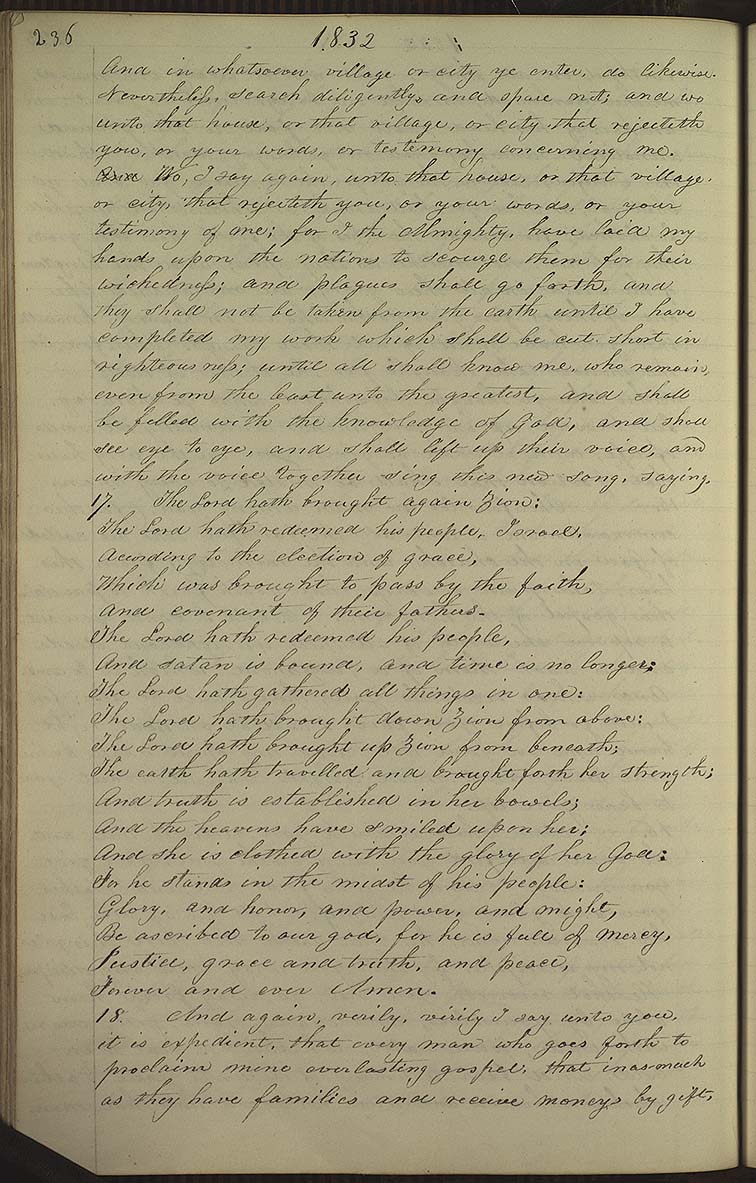 236
1832
And in whatsoever village or city ye enter, do likewise.
Nevertheless, search diligently, and spare not; and wo
unto that house, or that village, or city that rejecteth
you, or your words, or testimony concerning me.
Wo, I say again, unto that house, or that village,
or city, that rejecteth you, or your words, or your
testimony of me; for I the Almighty, have laid my
hands upon the nations to scourge them for their
wickedness; and plagues shall go forth, and
they shall not be taken from the earth until I have
completed my work which shall be cut short in
righteousness; until all shall know me, who remain,
even from the least unto the greatest, and shall
be filled with the knowledge of God, and shall
see eye to eye, and shall lift up their voice, and
with the voice together sing this new song, saying,
17. The Lord hath brought again Zion:
The Lord hath redeemed his people, Israel,
According to the election of grace,
Which was brought to pass by the faith,
And covenant of their fathers.
The Lord hath redeemed his people,
And satan is bound, and time is no longer:
The Lord hath gathered all things in one:
The Lord hath brought down Zion from above:
The Lord hath brought up Zion from beneath;
The earth hath travelled and brought forth her strength;
And truth is established in her bowels;
And the heavens have smiled upon her;
And she is clothed with the glory of her God:
For he stands in the midst of his people:
Glory, and honor, and power, and might,
Be ascribed to our god, for he is full of mercy,
Justice, grace and truth, and peace,
Forever and ever Amen.
18. And again, verily, virily I say unto you,
it is expedient, that every man who goes forth to
proclaim mine everlasting gospel, that inasmuch
as they have families and receive moneys by gift,